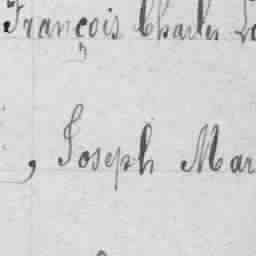 François Charles Lo
, Joseph Mar